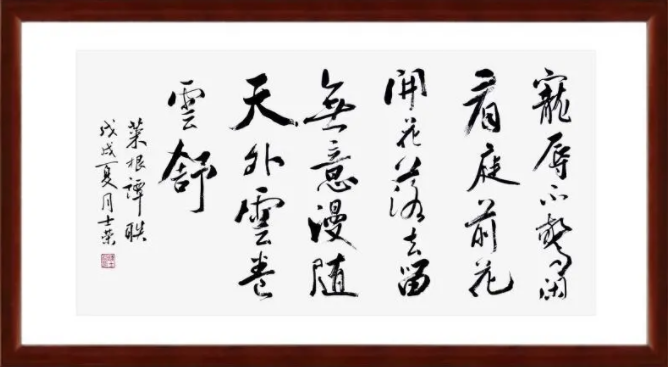 寵辱不驚閑
看庭前花
開花落去留
無意漫随
天外雲卷
雲舒
菜根譚聯
戊戌夏月士榮